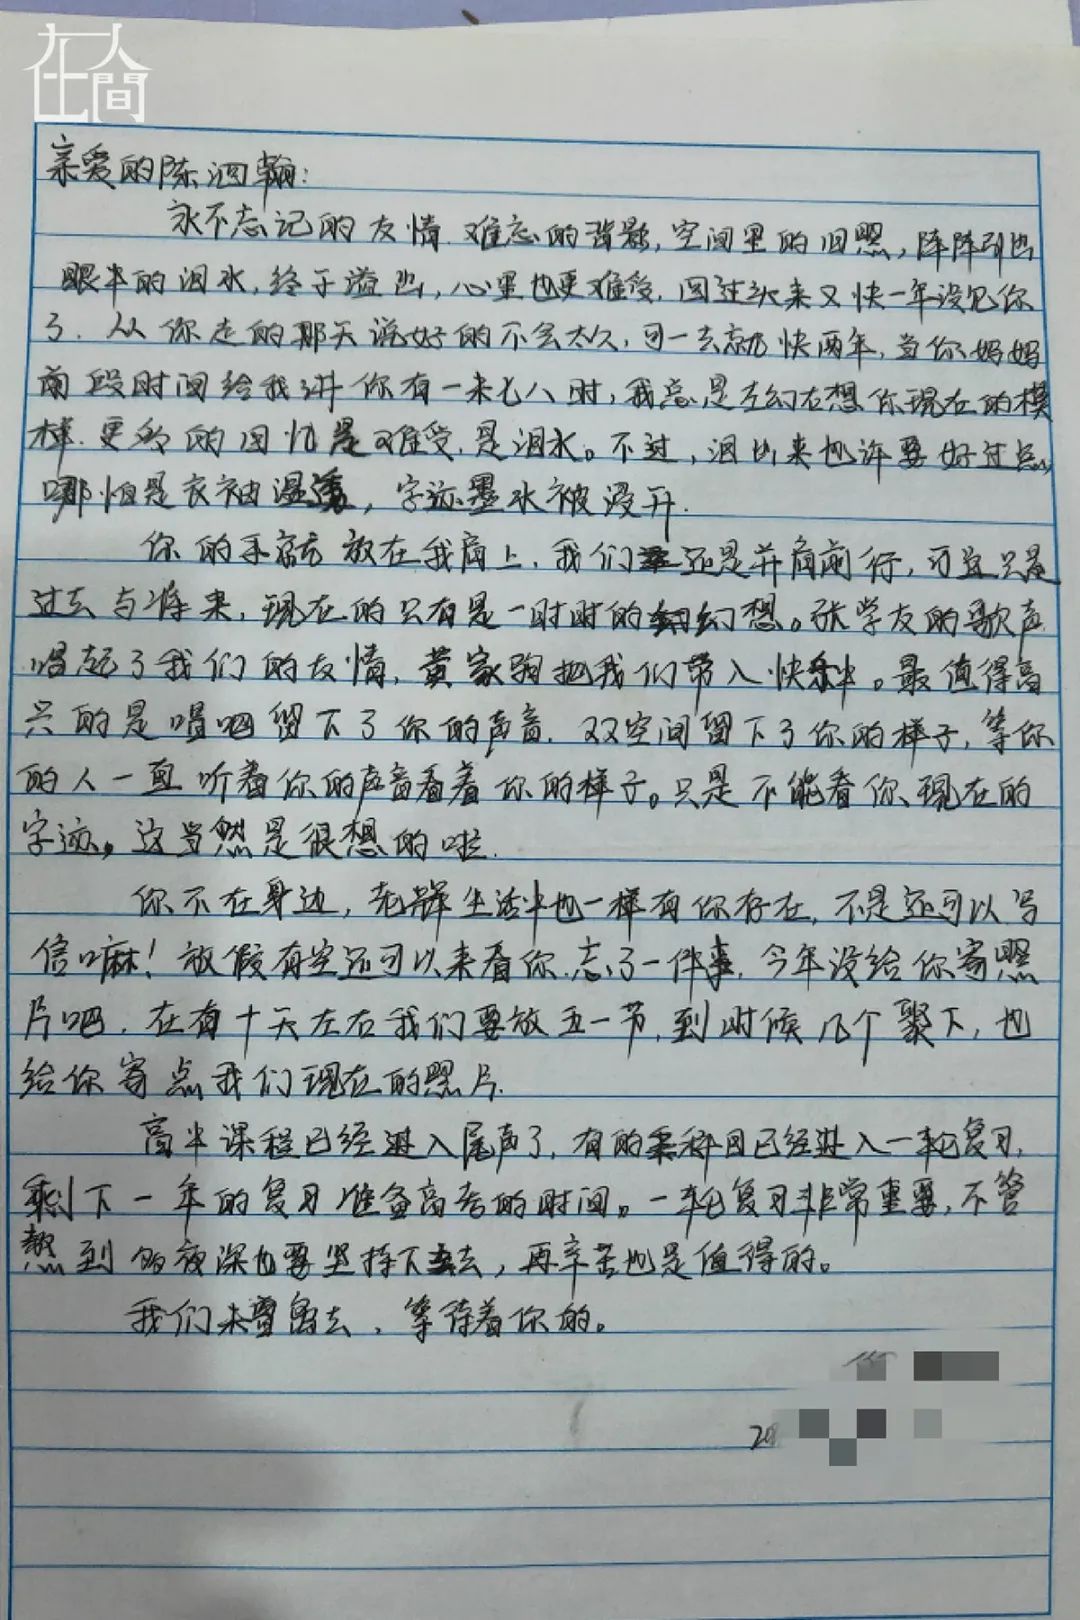 在人間
亲爱的陈泗翰:
永不忘记的友情.难忘的背影,空间里的旧照,阵阵引出
眼中的泪水,终于溢出,心里也更难受,回过头来又快一年没见你
了.从你走的那天说好的不会太久,可一去就快两年,当你妈妈
前段时间给我讲你有一米七八时,我总是在幻想你现在的模
样.更多的回忆是难受,是泪水。不过,泪出来也许要好过点,
哪怕是衣袖湿透,字迹墨水被浸开.
你的手就放在我肩上,我们还是并肩前行,可这只是
过去与将来,现在的只有是一时时的幻想。张学友的歌声
唱起了我们的友情,黄家驹把我们带入快乐中。最值得高
兴的是唱吧留下了你的声音.双双空间留下了你的样子,等你
的人一直听着你的声音看着你的样子。只是不能看你现在的
字迹,这当然是很想的啦.
你不在身边,先辉生活中也一样有你存在,不是还可以写
信嘛!放假有空还可以来看你.忘了一件事,今年没给你寄照
片吧.在有十天左右我们要放五一节,到时候几个聚下,也
给你寄点我们现在的照片.
高中课程已经进入尾声了,有的科目已经进入一轮复习,
剩下一年的复习准备高考的时间。一轮复习非常重要,不管
熬到多夜深也要坚持下去,再辛苦也是值得的。
我们未曾离去,等待着你的。
20